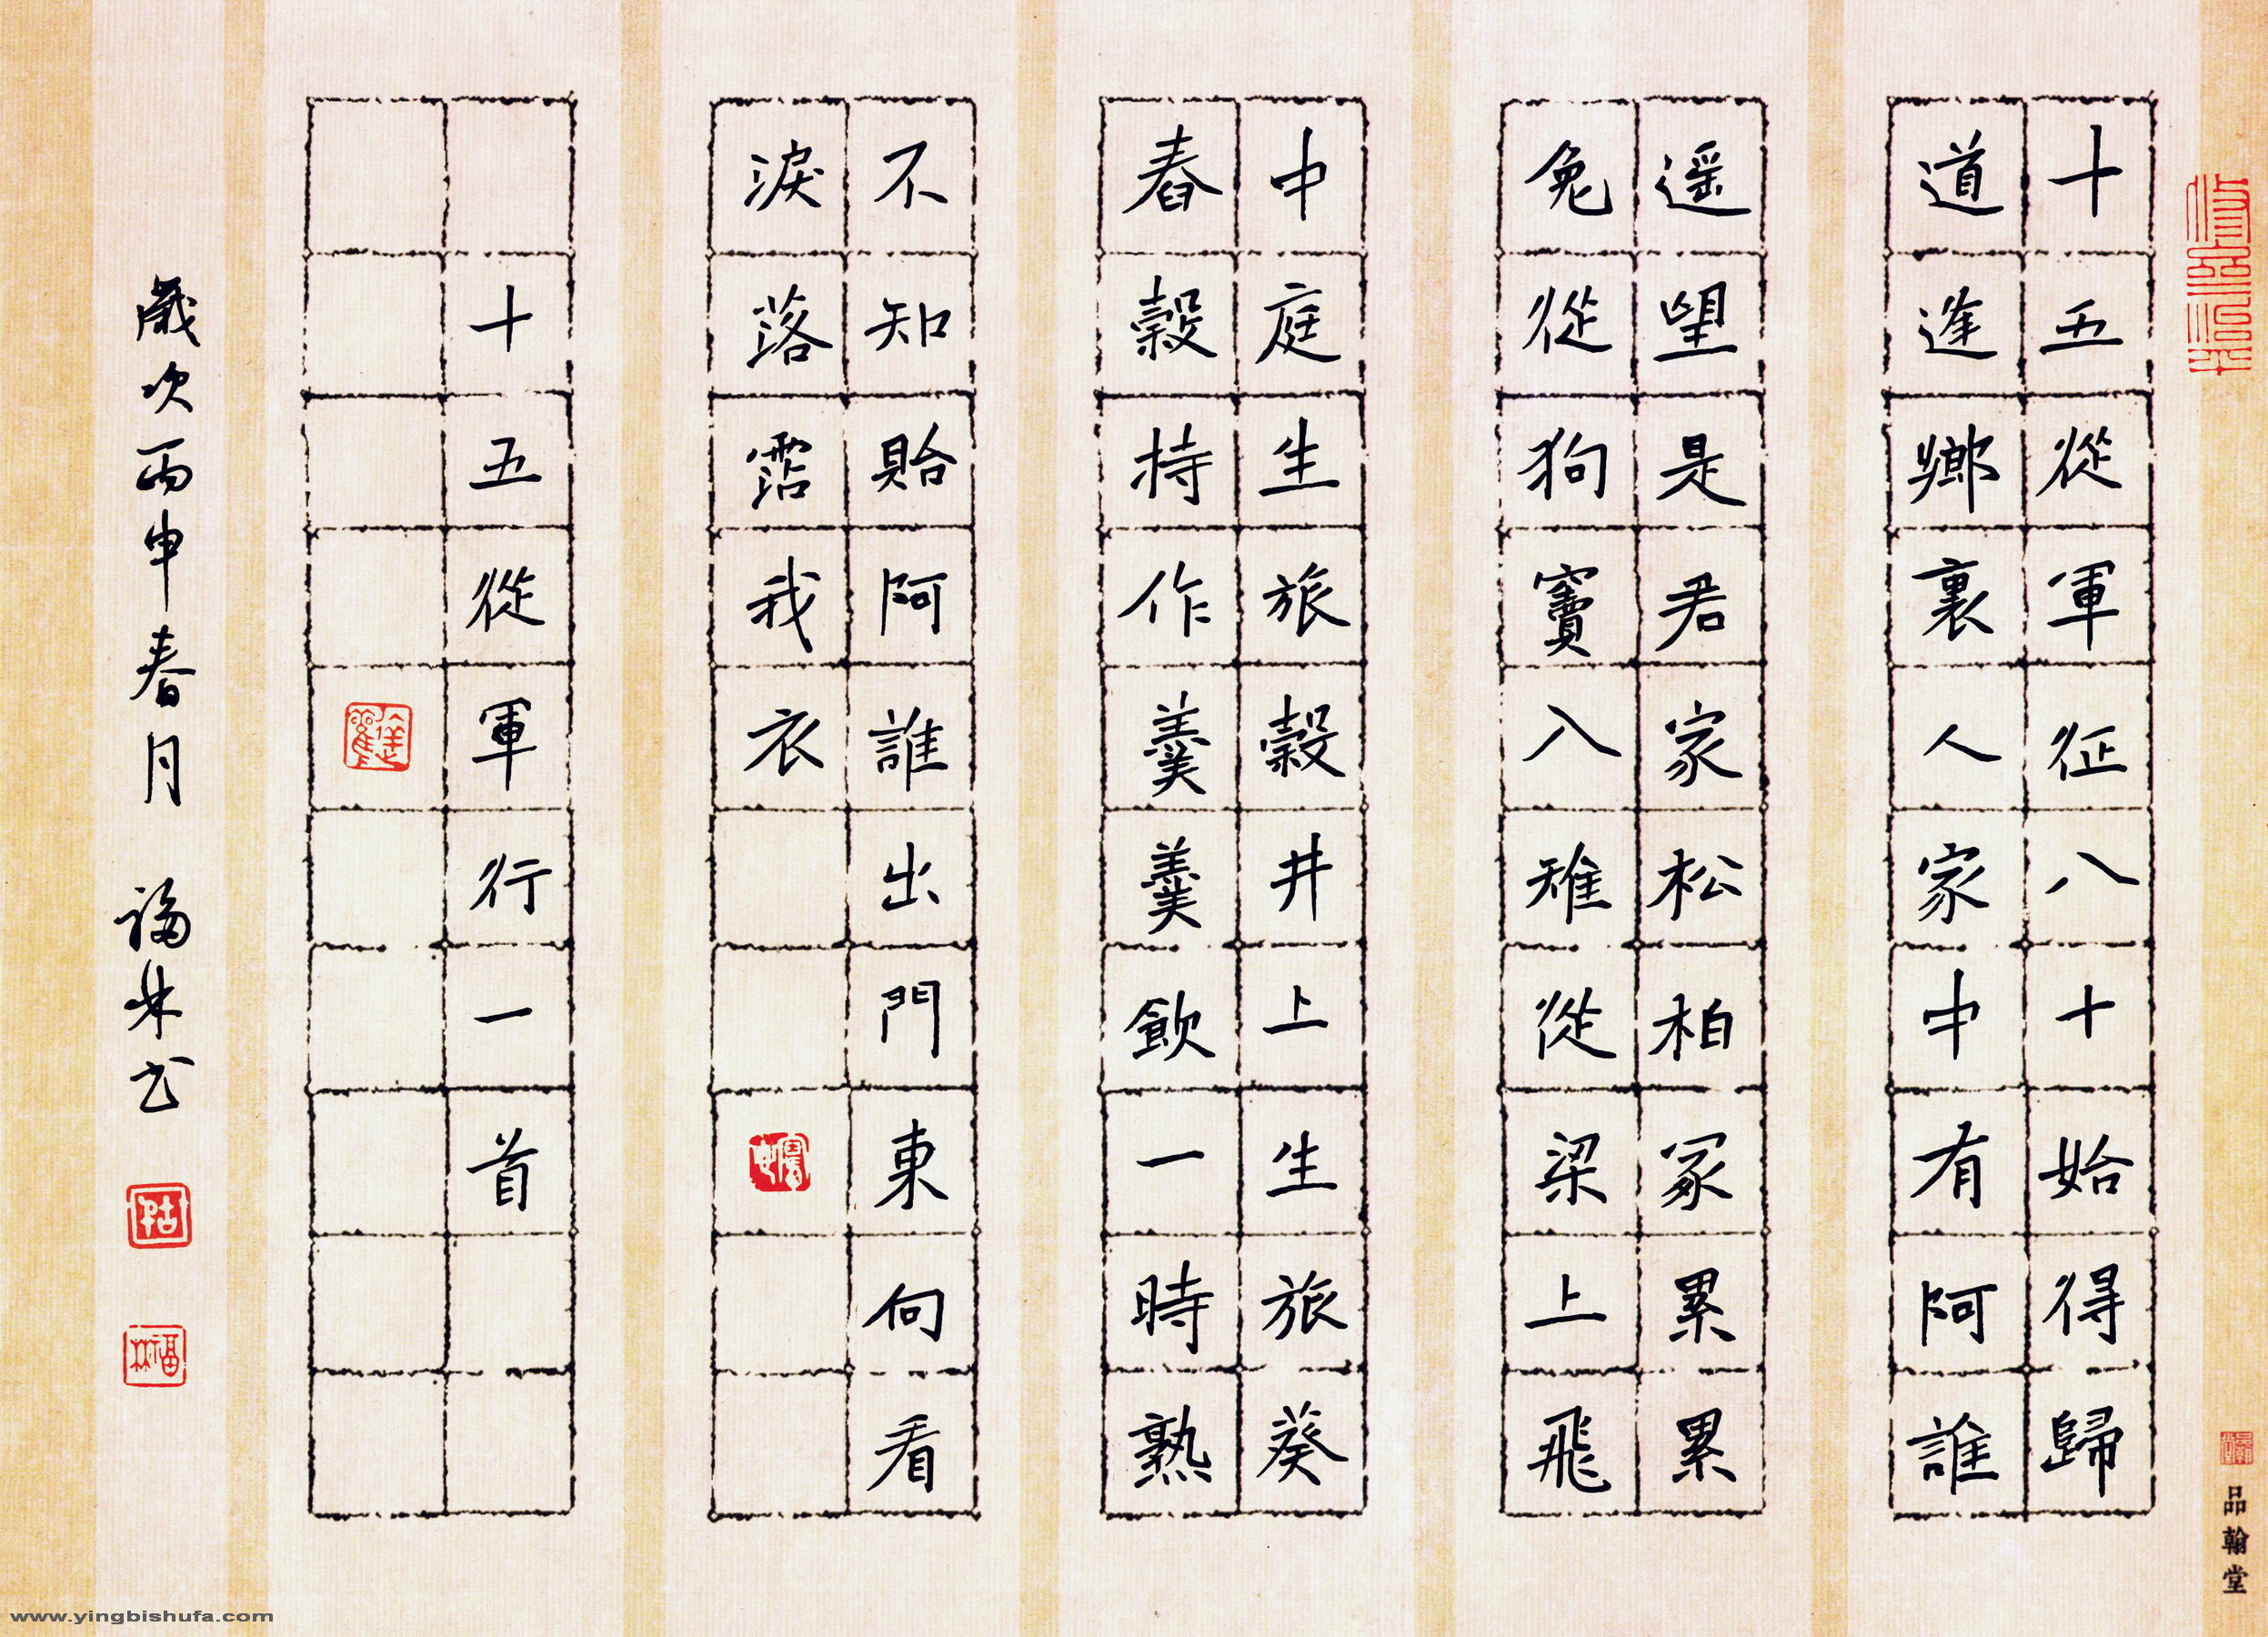 十五從軍征八十始得歸
道逢鄉裏人家中有阿誰
遥望是君家松柏冢累累
兔從狗竇入雉從梁上飛
中庭生旅穀井上生旅葵
舂穀持作羹羹飲一時熟
不知貽阿誰出門東向看
淚落霑我衣
十五從軍行一首
歲次丙申春月 福林书
福林
品翰堂
www.yingbishufa.com